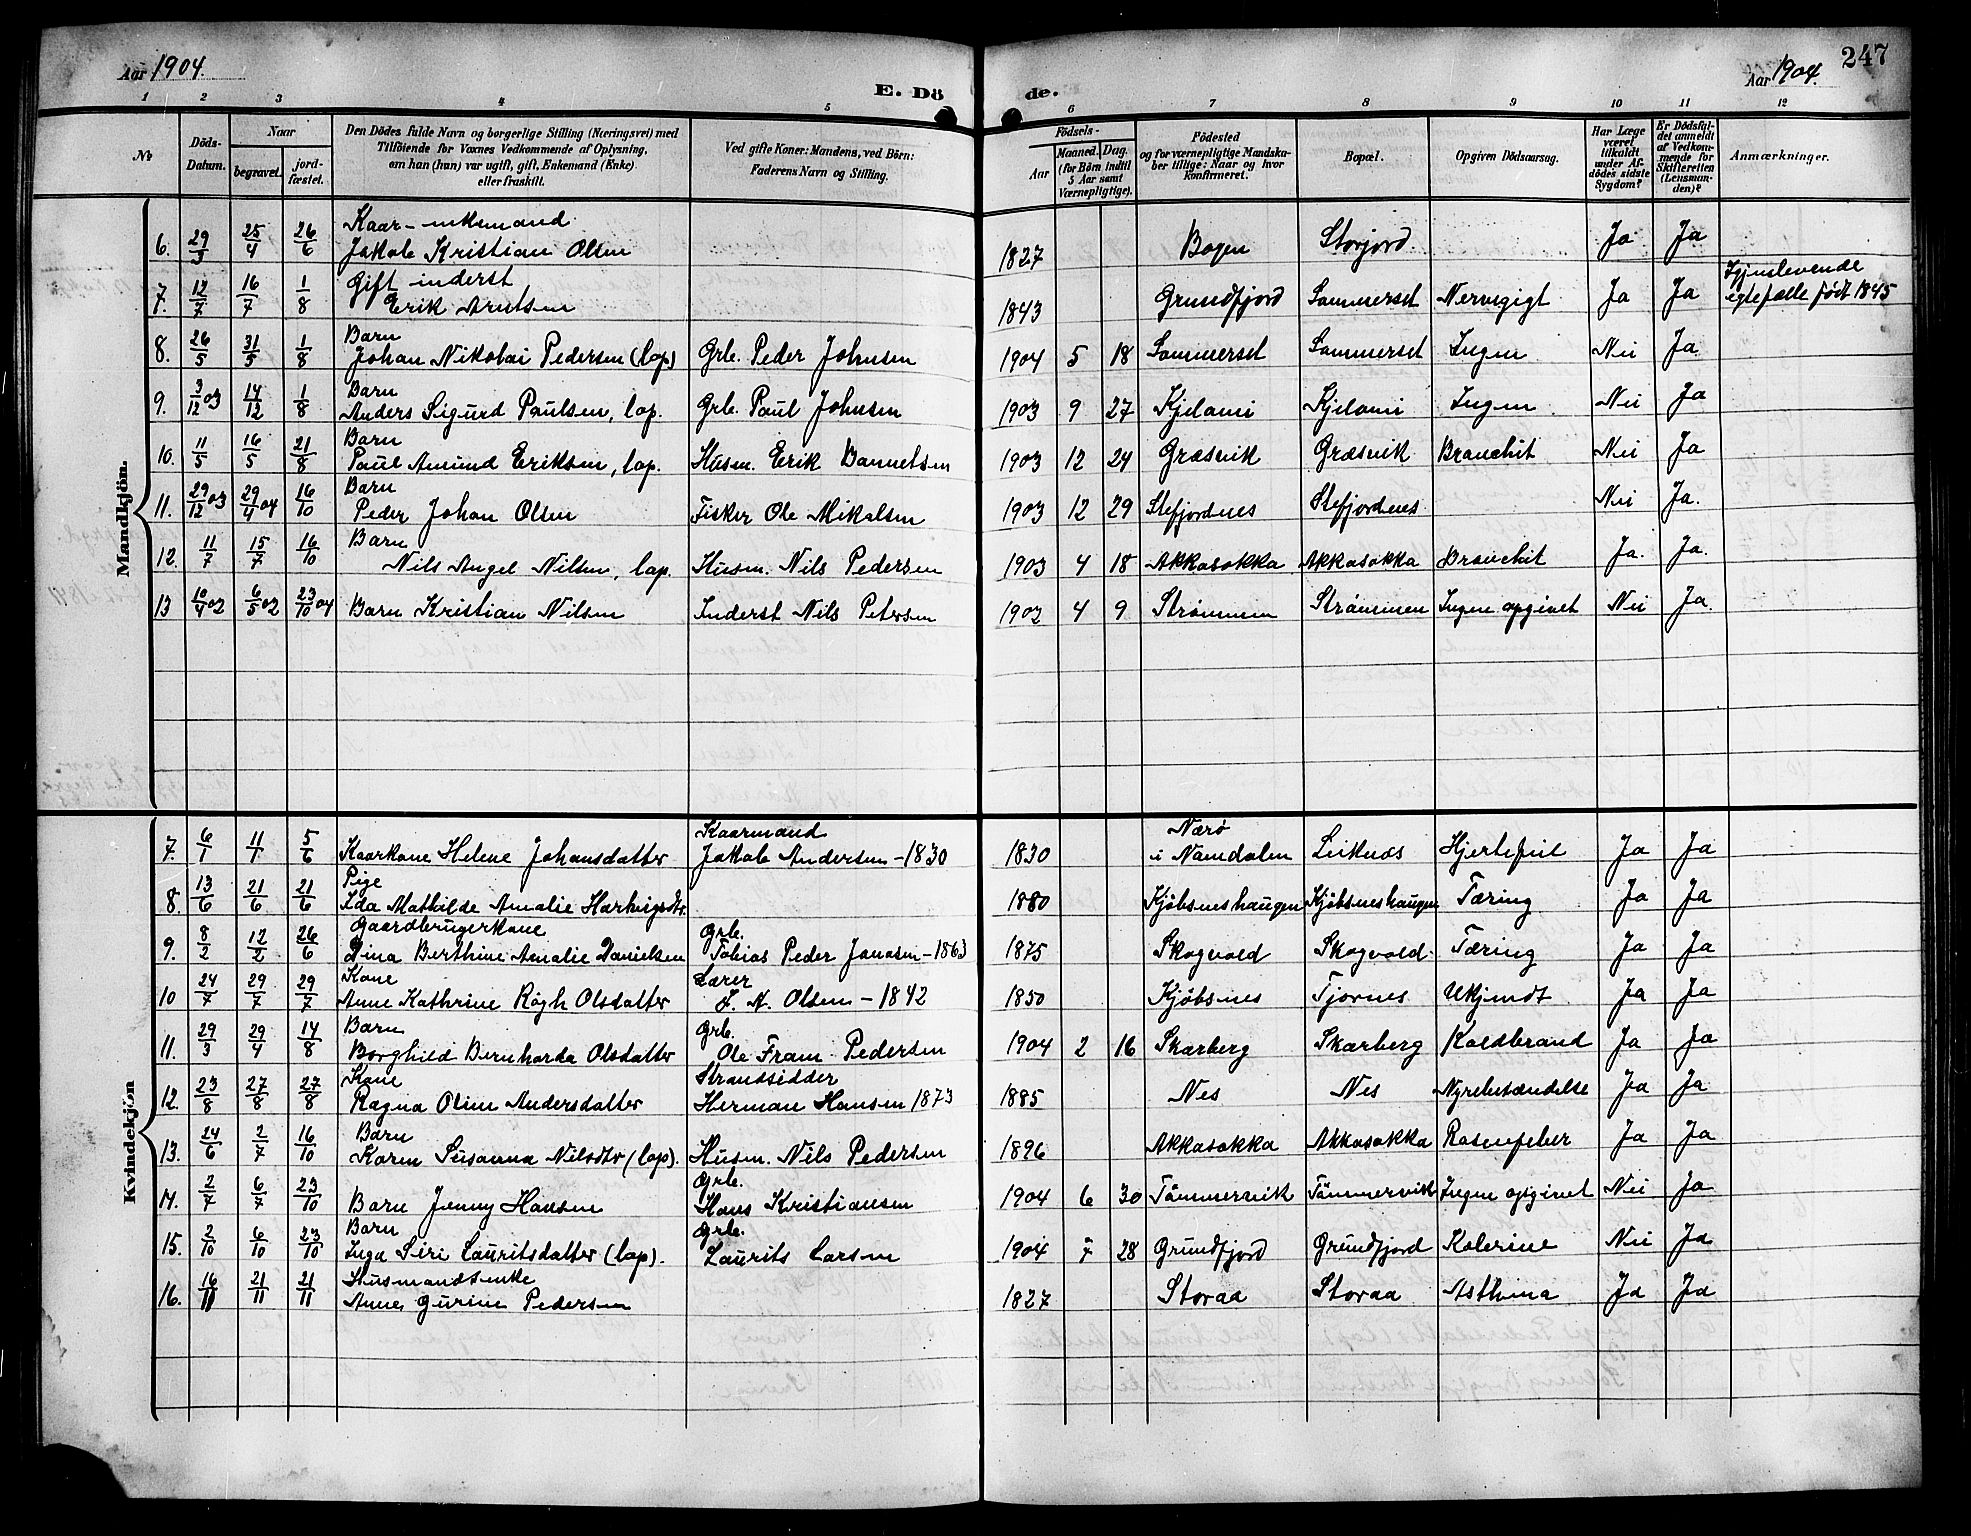 Aar 1904.
E. Döde.
Aar 1904.
247
1 2 3 4 5 6 7 8 9 10 11 12
No
Döds-Datum.
Naar
begravet.
jord-fæstet.
Den Dödes fulde Navn og borgerlige Stilling (Næringsvei) med
Tilföiende for Voxnes Vedkommende af Oplysning,
om han (hun) var ugift, gift, Enkemand (Enke)
eller fraskilt.
Ved gifte Koner: Mandens, ved Börn:
Faderens Navn og Stilling.
Födsels-
Aar
Maaned. Dag.
(for Börn indtil
5 Aar samt
Værnepligtige).
Födested
og for værnepligtige Mandska-
ber tillige: Naar og hvor
Konfirmeret.
Bopæl.
Opgiven Dödsaarsag.
Har Læge
været
tilkaldt
under Af-
dödes sidste
Sygdom?
Er Dödsfal-
det anmeldt
af Vedkom-
mende for
Skifteretten
(Lensman-
den)?
Anmærkninger.
Mandkjön.
6. 29/3 25/4 26/6 Kaar-enkemand Jakob Kristian Olsen 1827 Bogen Storjord Ja Ja
7. 12/7 16/7 1/8 Gift inderst Erik Arntsen 1843 Grundfjord Sommerset Nervegigt Ja Ja Igjenlevende egtefælle født 1845
8. 26/5 31/5 1/8 Barn Johan Nikolai Pedersen (lap) Grb. Peder Johnsen 1904 5 18 Sommerset Sommerset Ingen Nei Ja
9. 3/12 03 14/12 1/8 Barn Anders Sigurd Paulsen, lap. Grb. Paul Johnsen 1903 9 27 Kjelami Kjelami Ingen Nei Ja
10. 11/5 16/5 21/8 Barn Paul Amund Eriksen, lap. Husm. Erik Dannelsen 1903 12 24 Græsvik Græsvik Bronchit Nei Ja
11. 29/12 03 29/4 04 16/10 Barn Peder Johan Olsen Fisker Ole Mikalsen 1903 12 29 Stefjordnes Stefjordnes Nei Ja.
12. 11/7 15/7 16/10 Barn Nils Angel Nilsen, lap. Husm. Nils Pedersen 1903 4 18 Akkasokka Akkasokka Bronchit Ja. Ja.
13 10/4 02 6/5 02 23/10 04 Barn Kristian Nilsen Inderst Nils Petersen 1902 4 9 Strømmen Strømmen Ingen opgivet Nei Ja.
Kvindekjön
7. 6/1 11/1 5/6 Kaarkone Helene Johansdatter Kaarmand Jakob Andersen - 1830 1830 Nærø i Namdalen Leiknes Hjertefeil Ja Ja
8. 13/6 21/6 21/6 Pige Ida Mathilde Amalie Hartvigsdtr. 1880 Kjøbsneshaugen Kjøbsneshaugen Tæring Ja Ja
9. 8/2 12/2 26/6 Gaardbrugerkone Dina Berthine Amalie Danielsen Grb. Tobias Peder Jonasen - 1863 1875 Skogvold Skogvold. Tæring Ja Ja
10 24/7 29/7 29/7 Kone Anne Kathrine Røgh Olsdatter Lærer J. N. Olsen - 1842 1850 Kjøbsnes Tjørnes Ukjendt Ja Ja
11. 29/3 29/4 14/8 Barn Borghild Bernharda Olsdatter Grb. Ole Fram. Pedersen 1904 2 16 Skarberg Skarberg Koldbrand Ja Ja
12. 23/8 27/8 27/8 Kone Ragna Oline Andersdatter Strandsidder Herman Hansen 1873 1885 Nes Nes Nyrebetændelse Ja Ja
13. 24/6 2/7 16/10 Barn Karen Susanna Nilsdtr (lap). Husm. Nils Pedersen 1896 Akkasokka Akkasokka Rosenfeber Ja Ja
14. 2/7 6/7 23/10 Barn Jenny Hansen Grb. Hans Kristiansen 1904 6 30 Tømmervik Tømmervik Ingen opgivet Nei Ja
15. 2/10 6/10 23/10 Barn Inga Siri Lauritsdatter (lap). Grb. Laurits Larsen 1904 7 28 Grundfjord Grundfjord Kolerine Nei Ja
16. 16/11 21/11 21/11 Husmandsenke Anne Gurine Pedersen 1827 Storaa Storaa Asthma Ja Ja